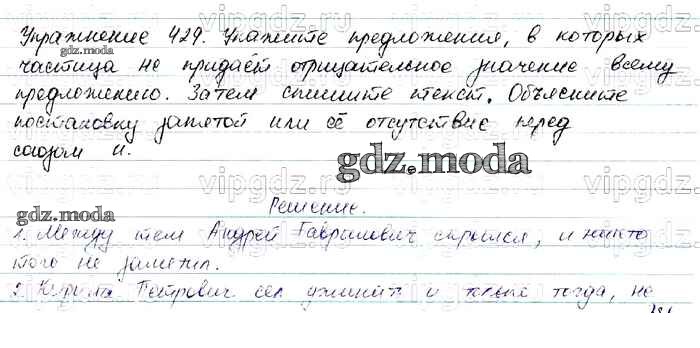 Упражнение 429. Укажите предложения, в которых
gdz.moda
частица не придаёт отрицательное значение всему
предложению. Затем спишите текст. Объясните
постановку запятой или её отсутствие перед
союзом и.
gdz.moda
Решение.
gdz.moda
1. Между тем Андрей Гаврилович скрылся, и никто
того не заметил.
2. Кирила Петрович сел ужинать и только тогда, не
gdz.moda